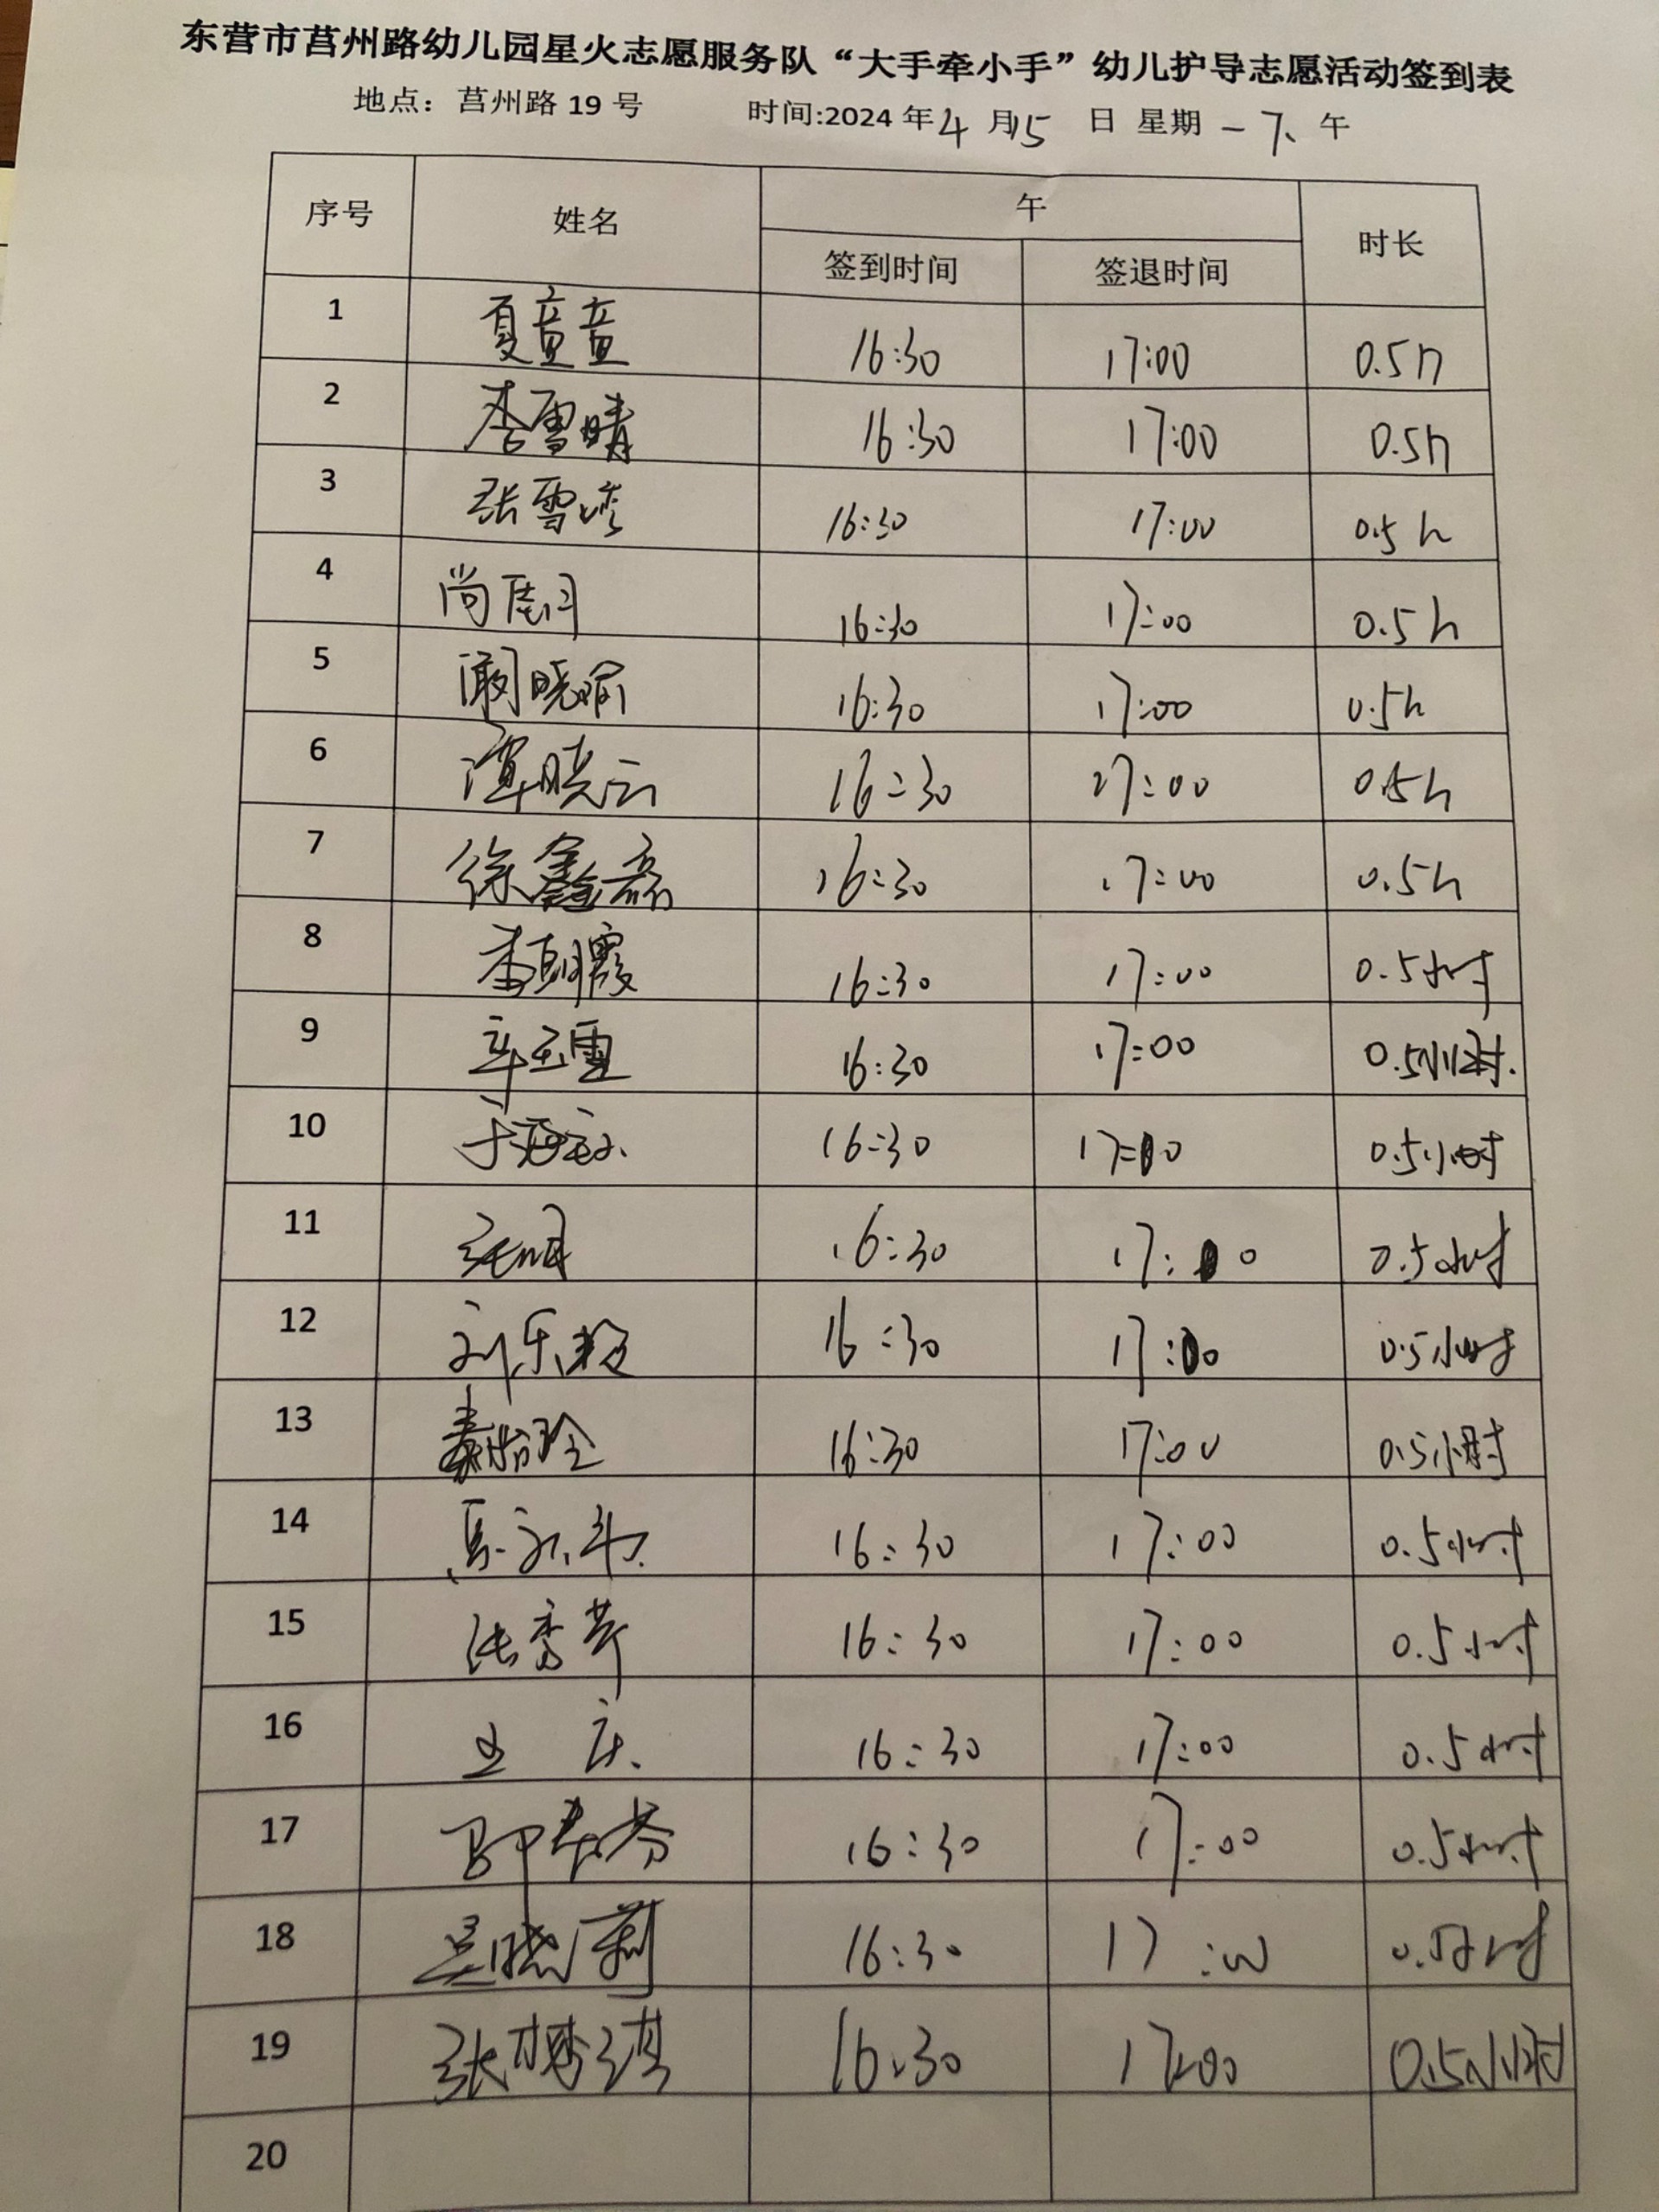 东营市莒州路幼儿园星火志愿服务队“大手牵小手”幼儿护导志愿活动签到表
地点：莒州路 19 号 时间:2024 年 4 月 15 日 星期 一 下 午
序号 姓名 午 时长
签到时间 签退时间
1 夏童童 16:30 17:00 0.5h
2 李雪晴 16:30 17:00 0.5h
3 张雪 16:30 17:00 0.5h
4 尚 16:30 17:00 0.5h
5 阚晓瑜 16:30 17:00 0.5h
6 谭晓云 16:30 17:00 0.5h
7 徐鑫磊 16:30 17:00 0.5h
8 李朝霞 16:30 17:00 0.5小时
9 辛玉雪 16:30 17:00 0.5小时.
10 于 16:30 17:00 0.5小时
11 16:30 17:00 0.5小时
12 刘乐 16:30 17:00 0.5小时
13 秦怡玲 16:30 17:00 0.5小时
14 16:30 17:00 0.5小时
15 张秀芹 16:30 17:00 0.5小时
16 16:30 17:00 0.5小时
17 春芬 16:30 17:00 0.5小时
18 吴晓莉 16:30 17:00 0.5小时
19 张梦琪 16:30 17:00 0.5小时
20